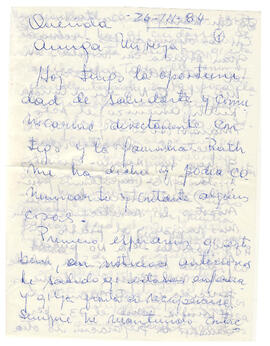 Querida
26-11-84
①
Amiga Mireya
Hoy tengo la oportuni
dad de saludarte y comu
nicarme directamente con
tigo y la familia. Ruth
me ha dicho q podia co
municarte y contarte algunas
cosas.
Primero, esperamos q estes
bien, en noticias anteriores
de saludo q estabas enferma
y q la gente se recuperara
siempre he mantenido entre